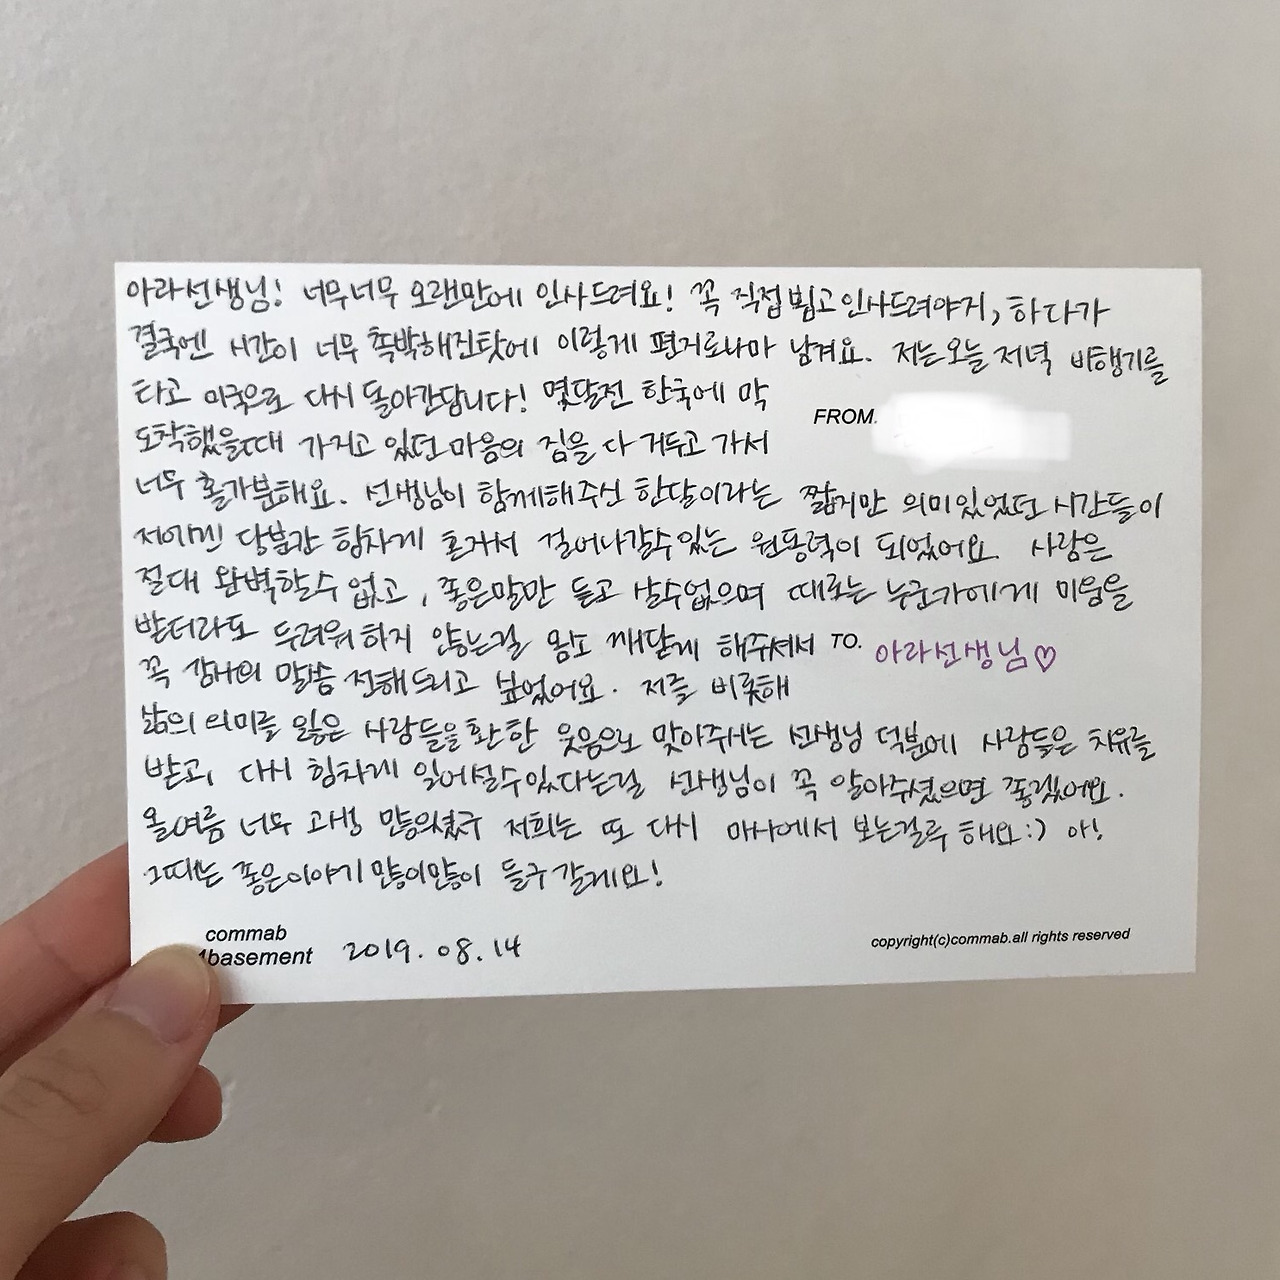 아라선생님! 너무너무 오랜만에 인사드려요! 꼭 직접 뵙고 인사드려야지, 하다가
결국엔 시간이 너무 촉박해진탓에 이렇게 편지로나마 남겨요. 저는 오늘 저녁 비행기를
타고 미국으로 다시 돌아간답니다! 몇달전 한국에 막
FROM.
도착했을때 가지고 있던 마음의 짐을 다 거두고 가서
너무 홀가분해요. 선생님이 함께해주신 한달이라는 짧지만 의미있었던 시간들이
저에겐 당분간 힘차게 혼자서 걸어나갈수있는 원동력이 되었어요. 사람은
절대 완벽할수 없고, 좋은말만 듣고 살수없으며 때로는 누군가에게 미움을
받더라도 두려워하지 않는걸 몸소 깨닫게 해주셔서
TO. 아라선생님♡
꼭 감사의 말씀 전해드리고 싶었어요. 저를 비롯해
삶의 의미를 잃은 사람들을 환한 웃음으로 맞아주시는 선생님 덕분에 사람들은 치유를
받고, 다시 힘차게 일어설수있다는걸 선생님이 꼭 알아주셨으면 좋겠어요.
올여름 너무 고생 많으셨구 저희는 또 다시 마사에서 보는걸루 해요:) 아!
그때는 좋은이야기 많이많이 들구 갈게요!
commab
basement
2019.08.14
copyright(c)commab.all rights reserved